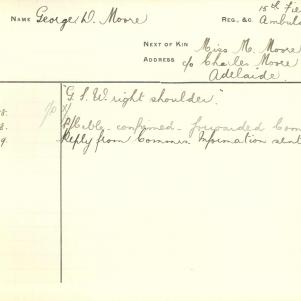 NAME George D. Moore
REG. &C. 15th Fie
Ambula
NEXT OF KIN Miss M. Moore
ADDRESS c/o Charles Moore
Adelaide.
"G. S. W. right shoulder."
8.
8. confirmed - forwarded Com
9. Reply from Commrs. Information sent